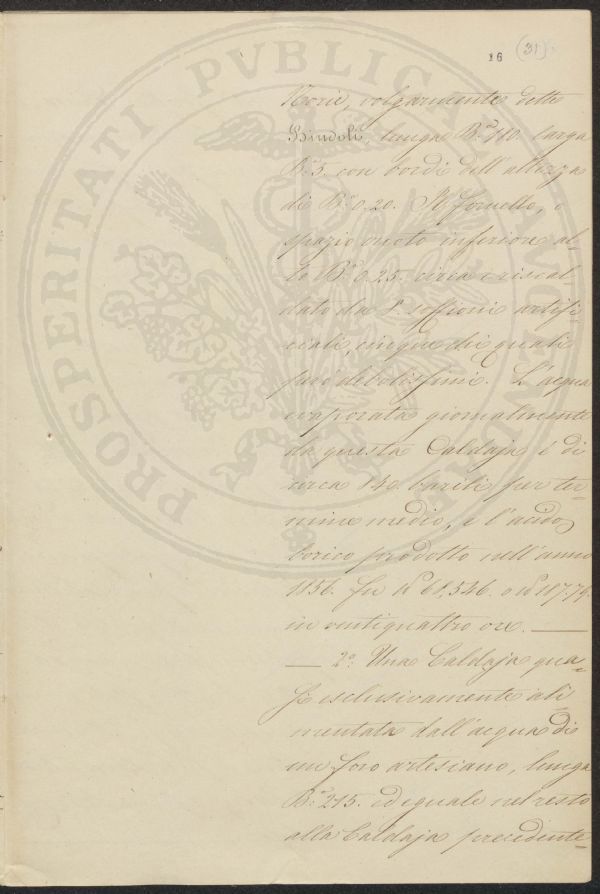 16 (31)
Norie, volgarmente dette
Bindoli, lunga B.ª 110. larga
B.ª 5. con bordi dell'altezza
di B.ª 0.20. Il fornello, o
spazio vuoto inferiore al-
to B.ª 0.25. circa è riscal
dato da 8. soffioni artifi
ciali, cinque dei quali
però debolissimi. L'acqua
evaporata giornalmente
da questa Caldaja è di
circa 140. barili per ter-
mine medio, e l'acido
borico prodotto nell'anno
1856. fu lb 68,546. o lb 187,79.
in ventiquattro ore. ——
— 2.º Una Caldaja qua-
si esclusivamente ali
mentata dall'acqua di
un foro artesiano, lunga
B.ª 215. ed eguale nel resto
alla Caldaja precedente
PROSPERITATI PVBLICAE